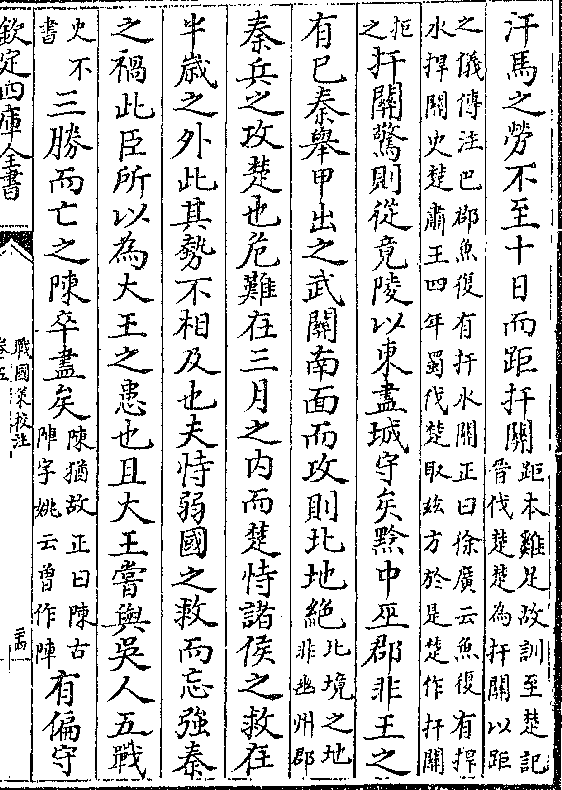 汗馬之勞不至十日而距扞關距本雞足故訓至楚記晉伐楚楚為扞關以距
之儀傳注巴郡魚復有扞水關正曰徐廣云魚復有捍水捍關史楚肅王四年蜀伐楚取玆方於是楚作扞關
拒之扞關驚則從竟陵以東盡城守矣黔中巫郡非王之
有巳秦舉甲出之武關南面而攻則北地絶北境之地非幽州郡
秦兵之攻楚也危難在三月之内而楚恃諸侯之救在
半歲之外此其勢不相及也夫恃弱國之救而忘強秦
之禍此臣所以為大王之患也且大王嘗與吳人五戰
史不書三勝而亡之陳卒盡矣陳猶故正曰陳古陣字姚云曾作陣有偏守
欽定四庫全書
戰國策校注
卷五